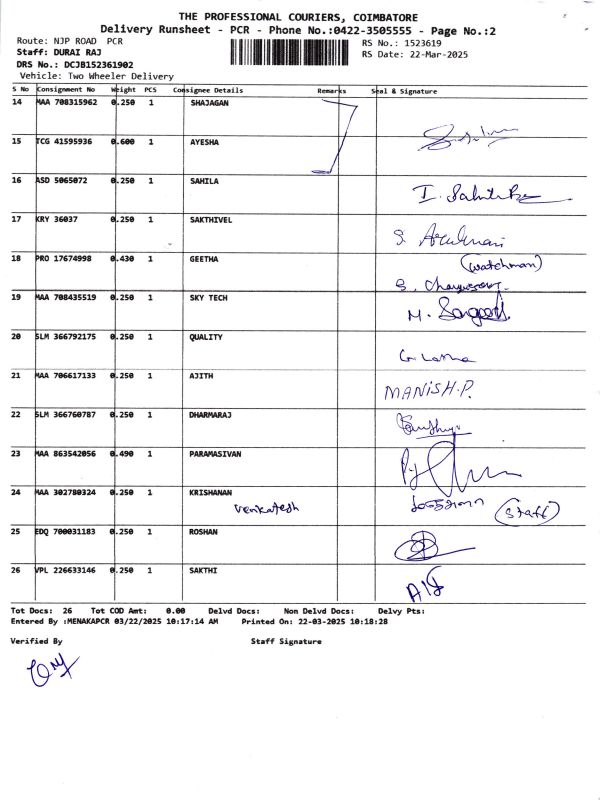 THE PROFESSIONAL COURIERS, COIMBATORE
Delivery Runsheet - PCR - Phone No.:0422-3505555 - Page No.:2
Route: NJP ROAD PCR RS No.: 1523619
Staff: DURAI RAJ RS Date: 22-Mar-2025
DRS No.: DCJB152361902
Vehicle: Two Wheeler Delivery
S No Consignment No Weight PCS Consignee Details Remarks Seal & Signature
14 MAA 708315962 0.250 1 SHAJAGAN
15 TCG 41595936 0.600 1 AYESHA
16 ASD 5065072 0.250 1 SAHILA
I.
17 KRY 36037 0.250 1 SAKTHIVEL
S.
18 PRO 17674998 0.430 1 GEETHA
(watchman)
S.
19 MAA 708435519 0.250 1 SKY TECH
M.
20 SLM 366792175 0.250 1 QUALITY
21 MAA 706617133 0.250 1 AJITH
MANISH.P.
22 SLM 366760787 0.250 1 DHARMARAJ
23 MAA 863542056 0.490 1 PARAMASIVAN
24 MAA 302780324 0.250 1 KRISHANAN
Venkatesh (Staff)
25 EDQ 700031183 0.250 1 ROSHAN
26 VPL 226633146 0.250 1 SAKTHI
Tot Docs: 26 Tot COD Amt: 0.00 Delvd Docs: Non Delvd Docs: Delvy Pts:
Entered By :MENAKAPCR 03/22/2025 10:17:14 AM Printed On: 22-03-2025 10:18:28
Verified By Staff Signature